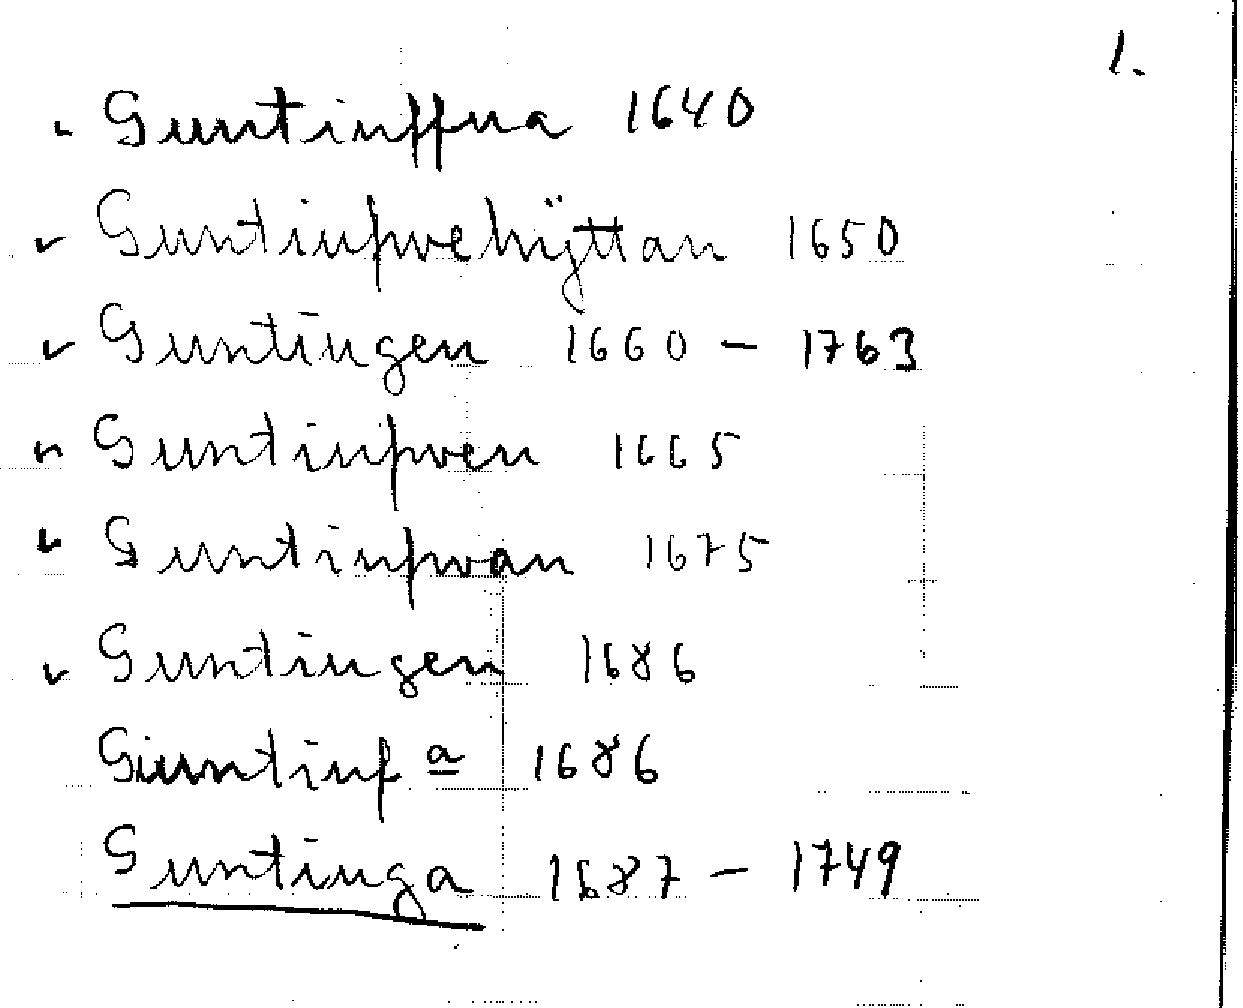 1.
Guntinffua 1640
Guntinpwehÿttan 1650
Guntingen 1660 - 1763
Guntinpwen 1665
Guntinpwan 1675
Guntingen 1686
Giuntinpa 1686
Guntinga 1687 - 1749